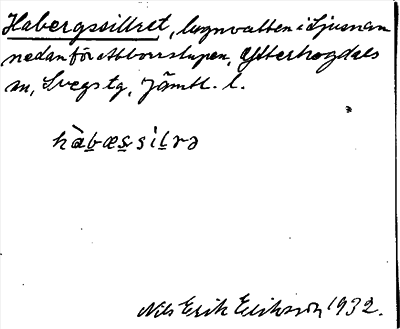 Habergssillret, lugnvatten i Ljusnan
nedanför Abborrstupen, Ytterhogdals
sn, Svegs tg, Jämtl. l.
hàbæssilrə
Nils Erik Eliksson 1932.